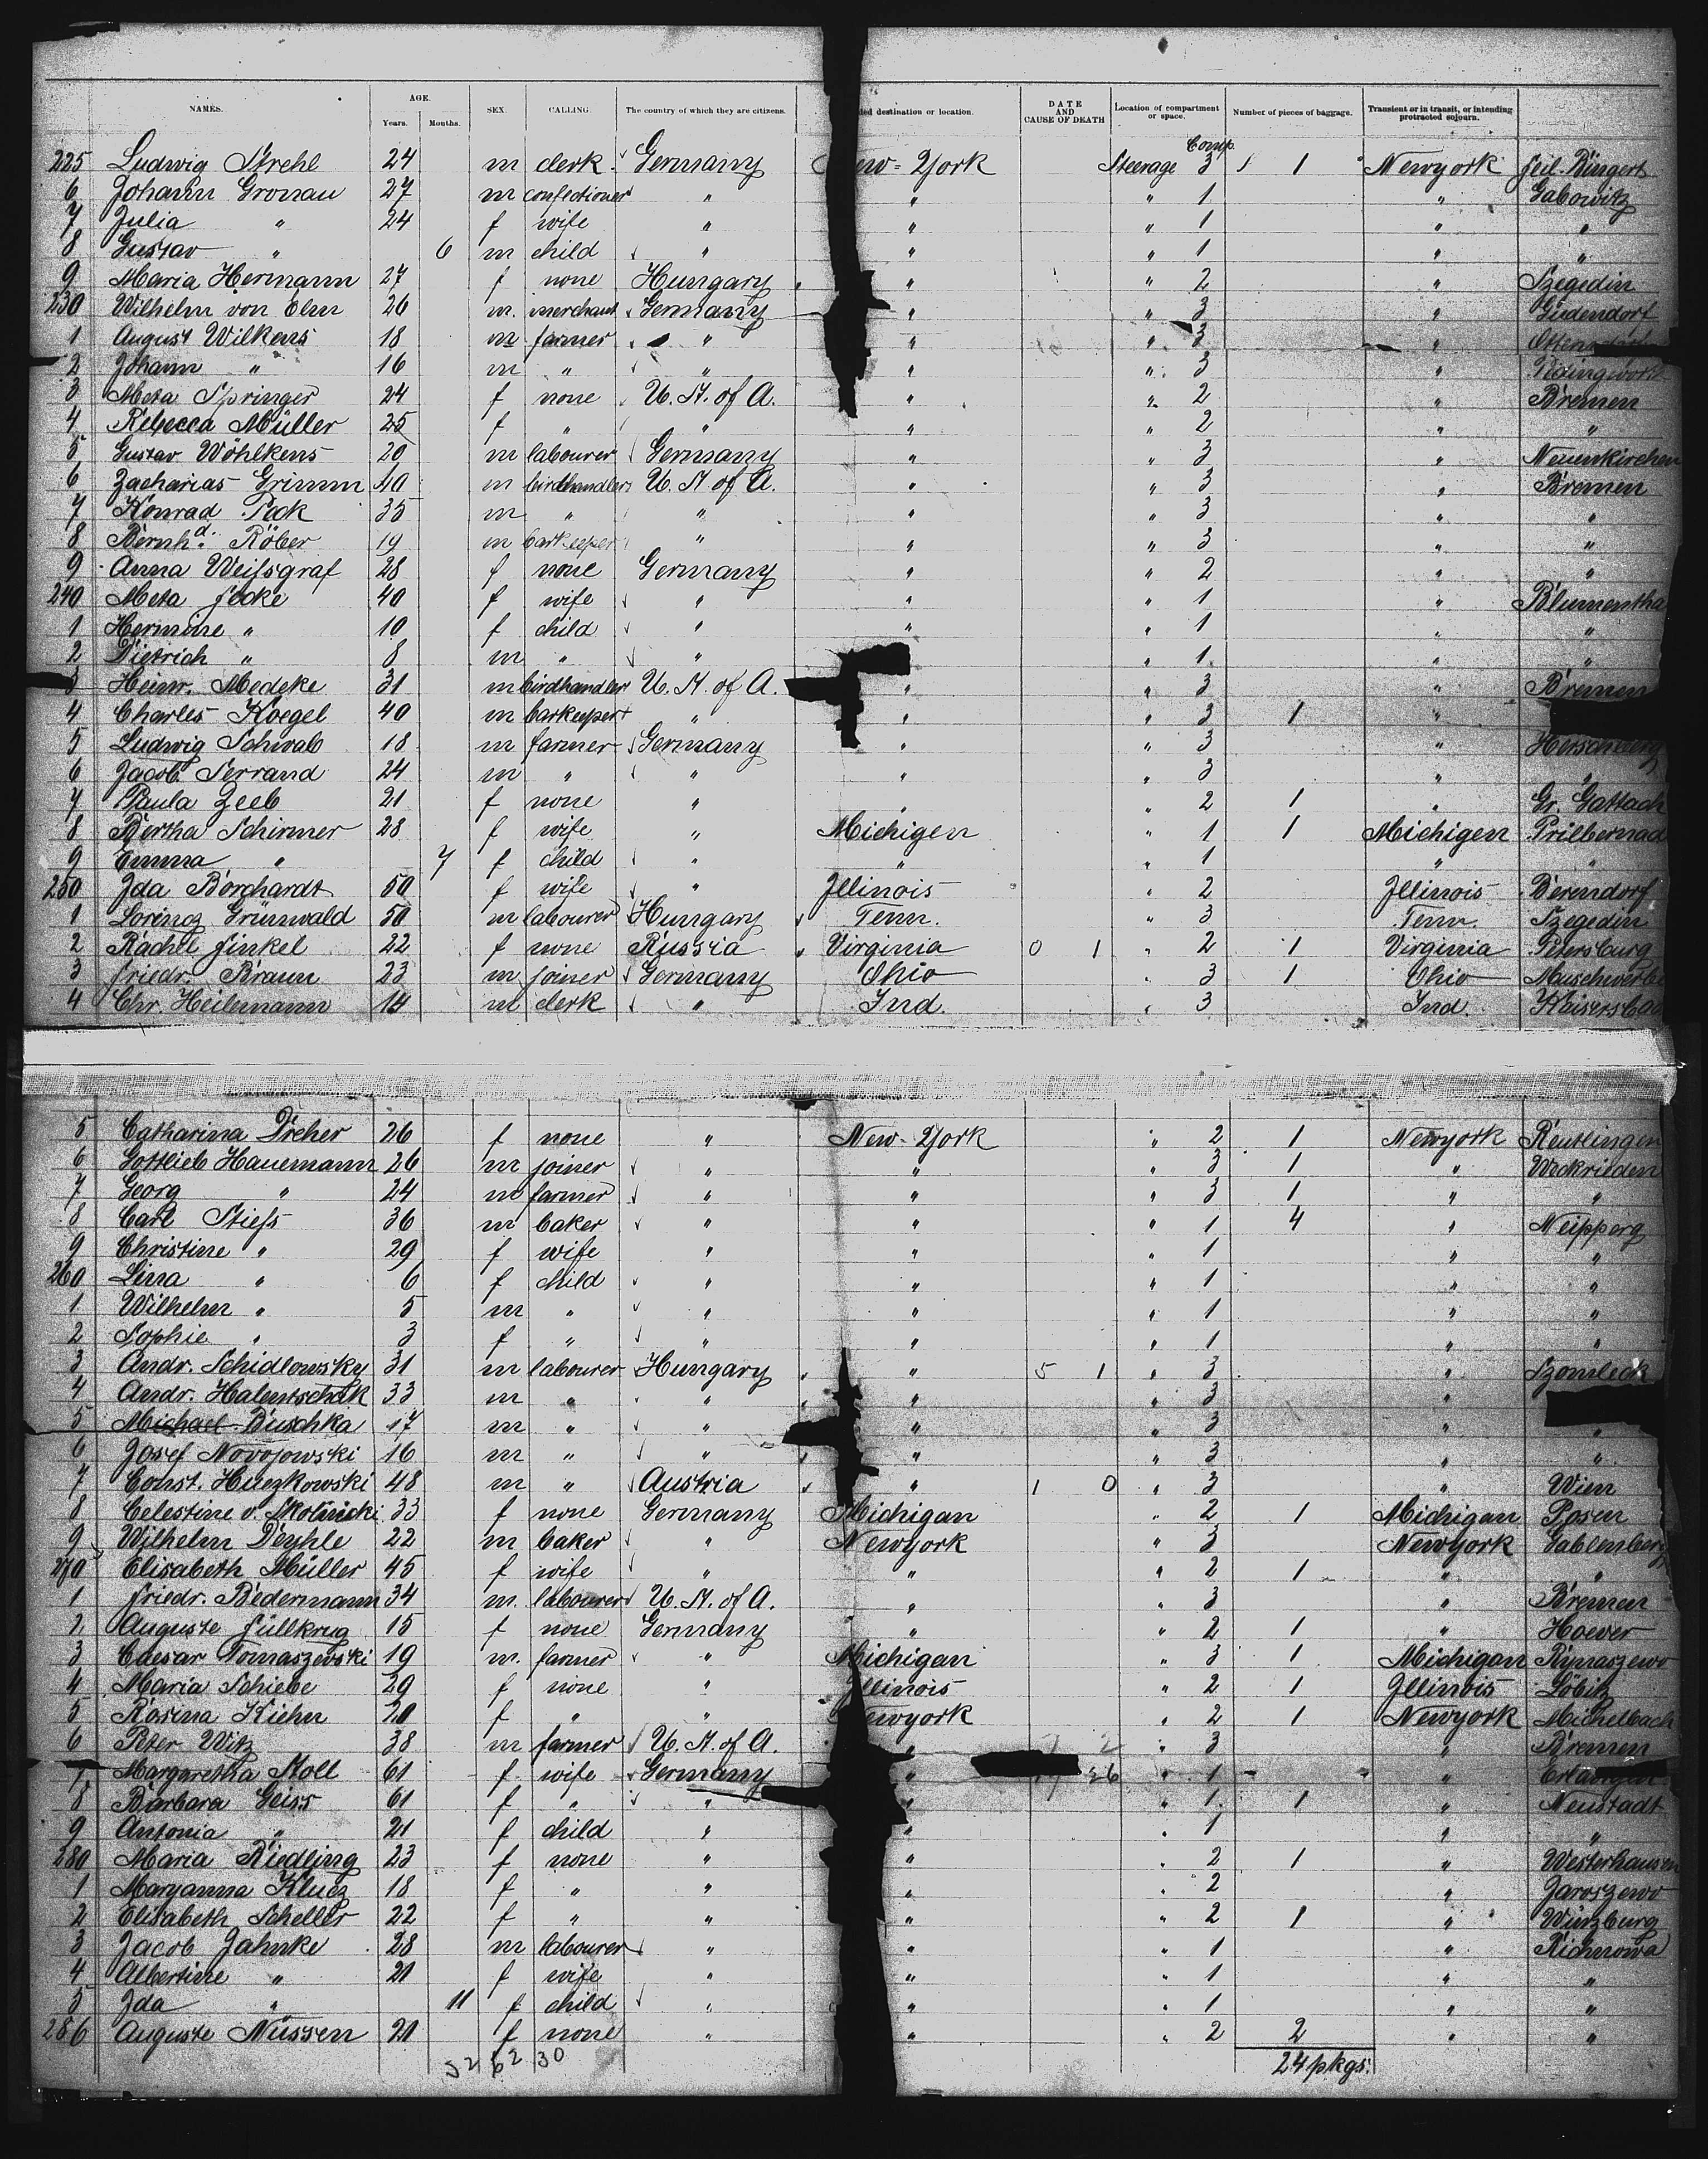 NAMES. AGE. Years. Months. SEX. CALLING The country of which they are citizens. ded destination or location. DATE AND CAUSE OF DEATH Location of compartment or space. Number of pieces of baggage. Transient or in transit, or intending protracted sojourn.
225 Ludwig Strehl 24 m clerk Germany ew-York Steerage Comp. 3 1 Newyork Heil. Ringert
6 Johann Gronau 27 m confectioner " " " 1 " Gabowitz
7 Julia " 24 f wife " " " 1 " "
8 Gustav " 6 m child " " " 1 " "
9 Maria Hermann 27 f none Hungary " " 2 " Szegedin
230 Wilhelm von Elm 26 m. merchant Germany " " 3 " Güdendorf
1 August Wilkens 18 m farmer " " " 3 "
2 Johann " 16 m " " " " 3 "
3 Meta Springer 24 f none U. St. of A. " " 2 " Bremen
4 Rebecca Müller 25 f " " " " 2 " "
5 Gustav Wöhlkens 20 m labourer Germany " " 3 " Neuenkirchen
6 Zacharias Grimm 40 m birdhandler U. St of A. " " 3 " Bremen
7 Konrad Peck 35 m " " " " 3 " "
8 Bernhd. Röber 19 m barkeeper " " " 3 " "
9 Anna Weissgraf 28 f none Germany " " 2 " "
240 Meta Focke 40 f wife " " " 1 " Blumentha
1 Hermine " 10 f child " " " 1 " "
2 Dietrich " 8 m " " " " 1 " "
3 Heinr. Medeke 31 m birdhandler U. St. of A. " " 3 " Bremen
4 Charles Koegel 40 m barkeeper " " " 3 1 "
5 Ludwig Schwab 18 m farmer Germany " " 3 "
6 Jacob Serrand 24 m " " " " 3 " "
7 Paula Zeeb 21 f none " " " 2 1 " Gr. Gattach
8 Bertha Schirmer 28 f wife " Michigen " 1 1 Michigen Prilbernad
9 Emma " 7 f child " " " 1 " "
250 Ida Borchardt 50 f wife " Illinois " 2 Illinois Berendorf
1 Lorincz Grünwald 50 m labourer Hungary Tenn. " 3 Tenn. Szegedin
2 Rachel Finkel 22 f none Russia Virginia 0 1 " 2 1 Virginia Petersburg
3 Friedr. Braun 23 m joiner Germany Ohio " 3 1 Ohio
4 Chr. Heilemann 14 m clerk " Ind. " 3 Ind. Kaisersbac
5 Catharina Dreher 26 f none " New-York " 2 1 Newyork Reutlingen
6 Gottlieb Hauemann 26 m joiner " " " 3 1 " Weckrieden
7 Georg " 24 m farmer " " " 3 1 " "
8 Carl Stiess 36 m baker " " " 1 4 " Neipperg
9 Christine " 29 f wife " " " 1 " "
260 Lina " 6 f child " " " 1 " "
1 Wilhelm " 5 m " " " " 1 " "
2 Sophie " 3 f " " " " 1 " "
3 Andr. Schidlowsky 31 m labourer Hungary " 5 1 " 3 " Szomleck
4 Andr. Halentschak 33 m " " " " 3 "
5 Michael Buschka 17 m " " " " 3 " "
6 Josef Novojowski 16 m " " " " 3 " "
7 Const. Huezkowski 48 m " Austria " 1 0 " 3 " Wien
8 Celestine v. Skolnicki 33 f none Germany Michigan " 2 1 Michigan Posen
9 Wilhelm Deyhle 22 m baker " Newyork " 3 Newyork Gablenberg
270 Elisabeth Müller 45 f wife " " " 2 1 " "
1 Friedr. Bedermann 34 m. labourer U. St. of A. " " 3 " Bremen
2 Auguste Füllkrug 15 f none Germany " " 2 1 " Hoever
3 Caesar Tomaszewski 19 m. farmer " Michigan " 3 1 Michigan Rynaszewo
4 Maria Schiebe 29 f none " Illinois " 2 1 Illinois Löbitz
5 Rosina Kiehn 20 f " " Newyork " 2 1 Newyork Michelbach
6 Peter Witz 38 m farmer U. St. of A. " 2 " 3 " Bremen
7 Margaretha Stoll 61 f wife Germany " 26 " 1 "
8 Barbara Geiss 61 f " " " " 1 1 " Neustadt
9 Antonia " 21 f child " " " 1 " "
280 Maria Riedling 23 f none " " " 2 1 " Westerhausen
1 Maryanna Klucz 18 f " " " " 2 " Jaroszewo
2 Elisabeth Scheller 22 f " " " " 2 1 " Würzburg
3 Jacob Jahnke 28 m labourer " " " 1 " Richnowa
4 Albertine " 21 f wife " " " 1 " "
5 Ida " 11 f child " " " 1 " "
286 Auguste Nüssen 21 f none " " " 2 2 " "
52 62 30 24 pkgs.